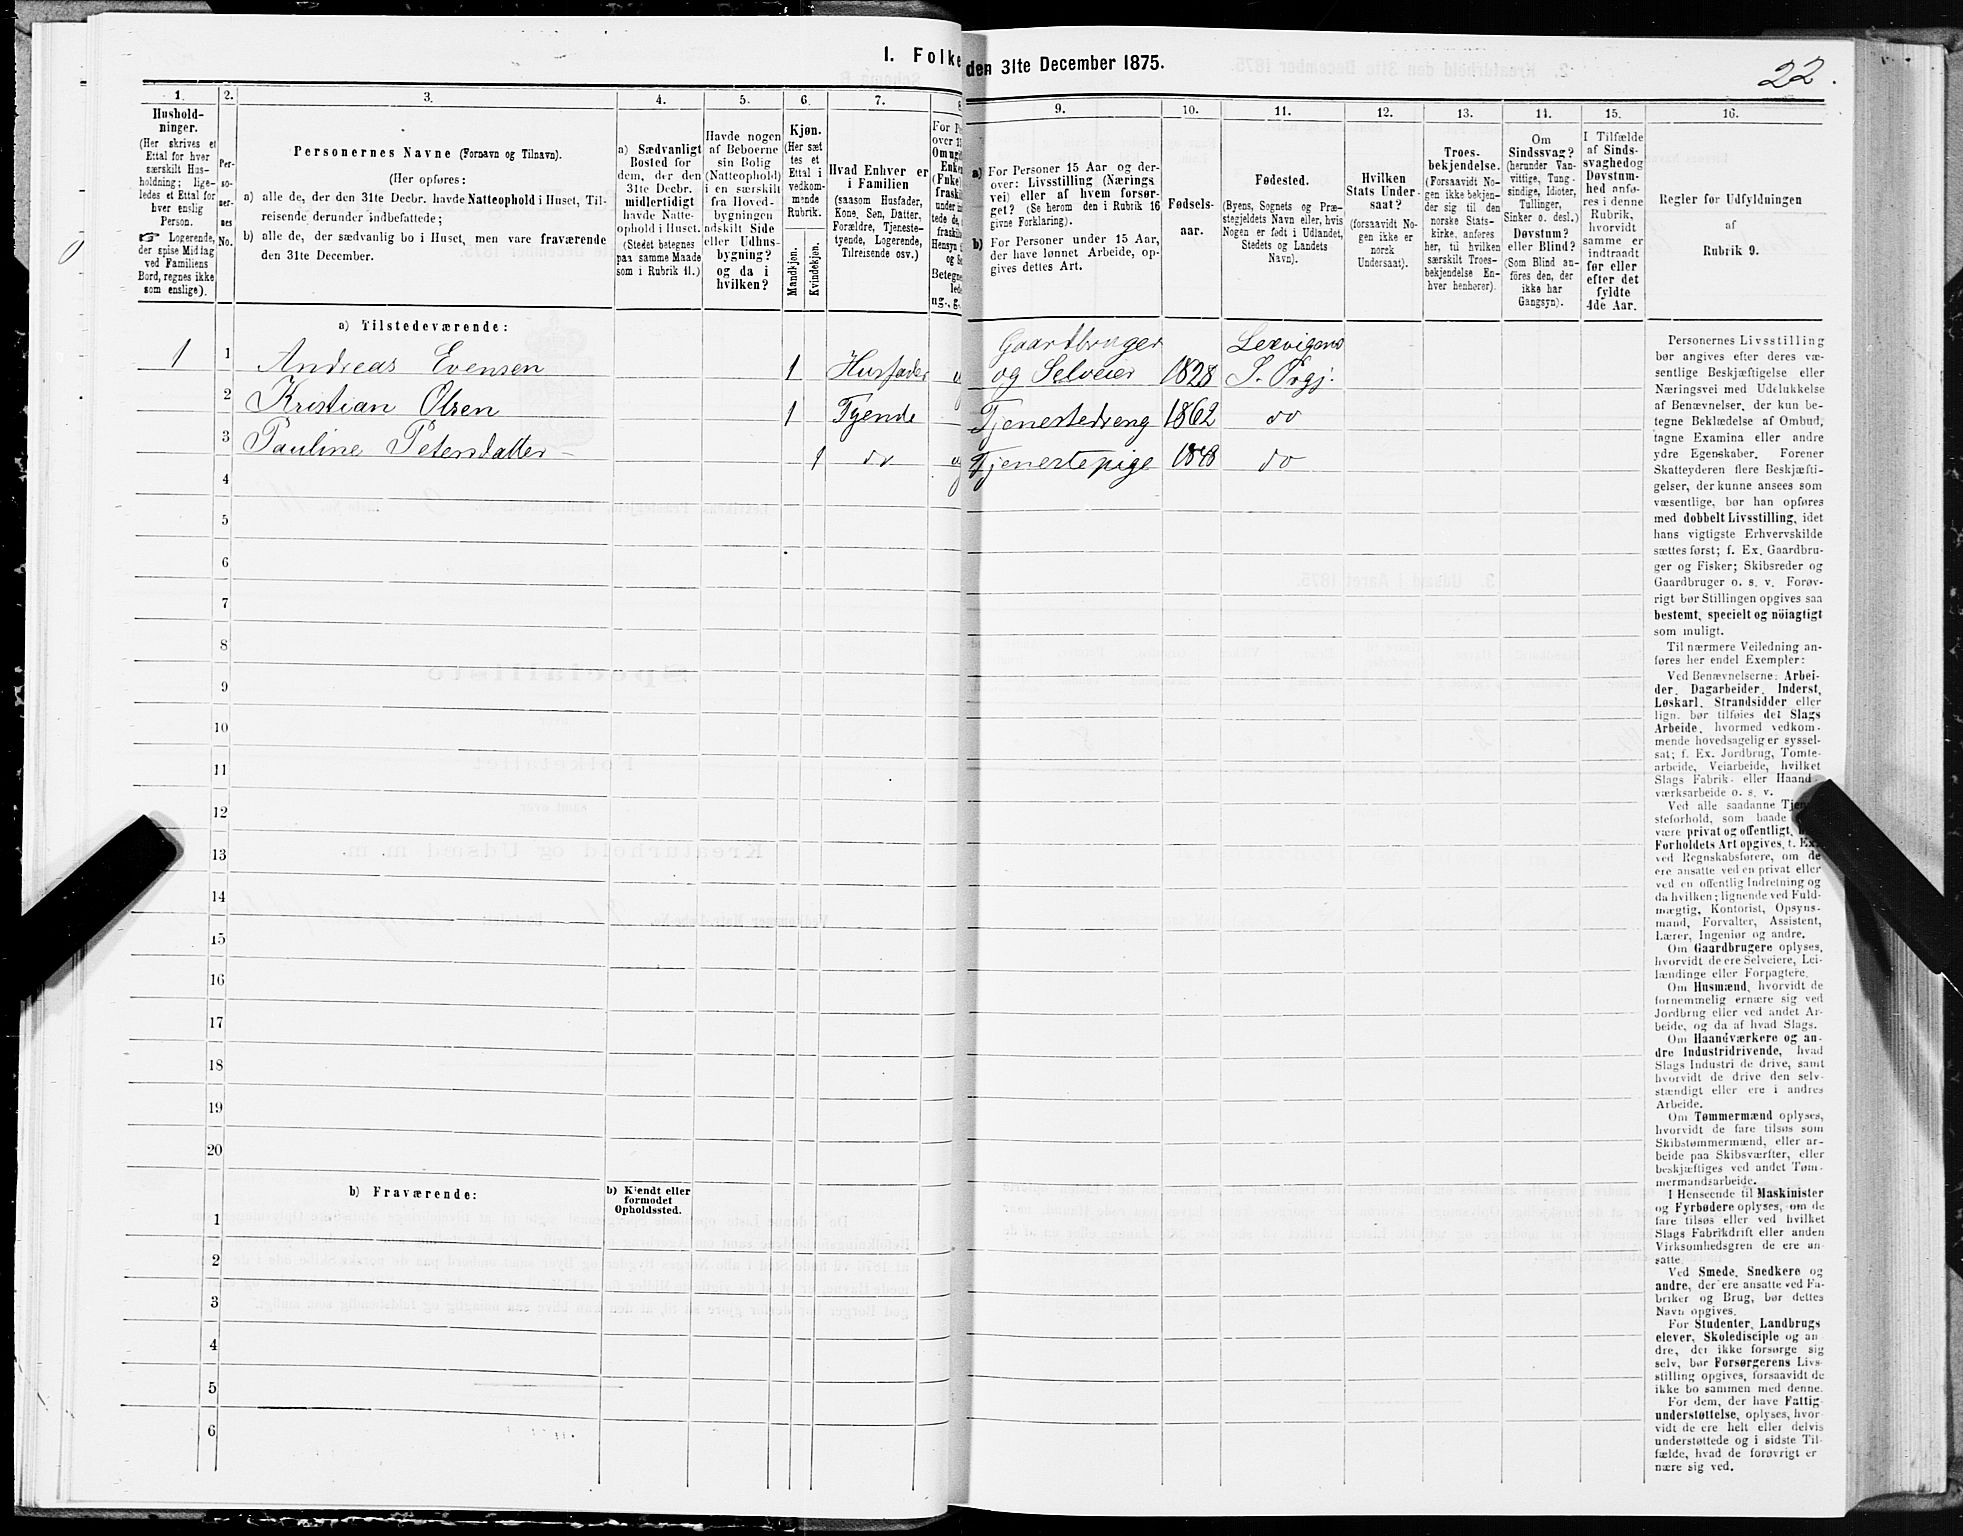 1. Folke
den 31te December 1875.
22.
1.
2.
3.
4.
5.
6.
7.
8
9.
10.
11.
12.
13.
14.
15.
16.
Hushold-
ninger.
(Her skrives et
Ettal for hver
særskilt Hus-
holdning; lige-
ledes et Ettal for
hver enslig
Person.
☞ Logerende,
der spise Middag
ved Familiens
Bord, regnes ikke
som enslige).
Per-
so-
ner-
nes
No.
Personernes Navne (Fornavn og Tilnavn).
(Her opføres:
a) alle de, der den 31te Decbr. havde Natteophold i Huset, Til-
reisende derunder indbefattede;
b) alle de, der sædvanlig bo i Huset, men vare fraværende
den 31te December.
a) Sædvanligt
Bosted for
dem, der den
31te Decbr.
midlertidigt
havde Natte-
ophold i Huset.
(Stedet betegnes
paa samme Maade
som i Rubrik 11.)
Havde nogen
af Beboerne
sin Bolig
(Natteophold)
i en særskilt
fra Hoved-
bygningen
adskilt Side
eller Udhus-
bygning?
og da i
hvilken?
Kjøn.
(Her sæt
tes et
Ettal i
vedkom-
mende
Rubrik.
Mandkjøn.
Kvindekjøn.
Hvad Enhver er
i Familien
(saasom Husfader,
Kone, Søn, Datter,
Forældre, Tjeneste-
tyende, Logerende,
Tilreisende osv.)
For Pe
over 1
Omugi
Enke
(Fnke
fraskil
under in
tede de,
fraskil
Hensyn t
og S
Betegne
lede
ug., g.,
a) For Personer 15 Aar og der-
over: Livsstilling (Nærings
vei) eller af hvem forsør-
get? (Se herom den i Rubrik 16
givne Forklaring).
b) For Personer under 15 Aar,
der have lønnet Arbeide, op-
gives dettes Art.
Fødsels-
aar.
Fødested.
(Byens, Sognets og Præ-
stegjeldets Navn eller, hvis
Nogen er født i Udlandet,
Stedets og Landets
Navn).
Hvilken
Stats Under-
saat?
(forsaavidt No-
gen ikke er
norsk
Undersaat).
Troes-
bekjendelse.
(Forsaavidt No-
gen ikke bekjen-
der sig til den
norske Stats-
kirke, anføres
her, til hvilken
særskilt Troes-
bekjendelse En-
hver henhører).
Om
Sindssvag?
(herunder Van-
vittige, Tung-
sindige, Idioter,
Tullinger,
Sinker o. desl.)
Døvstum?
eller Blind?
(Som Blind an-
føres den, der
ikke har
Gangsyn).
I Tilfælde
af Sinds-
svaghedog
Døvstum-
hed anfø-
res i denne
Rubrik,
hvorvidt
samme er
indtraadt
før eller
efter det
fyldte
4de Aar.
Regler for Udfyldningen
af
Rubrik 9.
a) Tilstedeværende:
1 1 Andreas Evensen 1 Husfader Gaardbruger og Selveier 1828 Lexvigens S. Prgj.
2 Kristian Olsen 1 Tyende Tjenestedreng 1862 do
3 Pauline Petersdatter 1 do Tjenestepige 1848 do
4
5
6
7
8
9
10
11
12
13
14
15
16
17
18
19
20
b) Fraværende:
b) Kjendt eller
formodet
Opholdssted.
1
2
3
4
5
6
Personernes Livsstilling
bør angives efter deres væ-
sentlige Beskjæftigelse eller
Næringsvei med Udelukkelse
af Benævnelser, der kun be-
tegne Beklædelse af Ombud,
tagne Examina eller andre
ydre Egenskaber. Forener
Skatteyderen flere Beskjæfti-
gelser, der kunne ansees som
væsentlige, bør han opføres
med dobbelt Livsstilling, idet
hans vigtigste Erhvervskilde
sættes først; f. Ex. Gaardbru-
ger og Fisker; Skibsreder og
Gaardbruger o. s. v. Forøv-
rigt bør Stillingen opgives saa
bestemt, specielt og nöiagtigt
som muligt.
Til nærmere Veiledning an-
føres her endel Exempler:
Ved Benævnelserne: Arbei-
der, Dagarbeider, Inderst,
Løskarl, Strandsidder eller
lign. bør tilføies det Slags
Arbeide, hvormed vedkom-
mende hovedsagelig er syssel-
sat; f. Ex. Jordbrug, Tomte-
arbeide, Veiarbeide, hvilket
Slags Fabrik- eller Haand-
værksarbeide o. s. v.
Ved alle saadanne Tjene
steforhold, som baade
være privat og offentligt,
Forholdets Art opgives, f. Ex.
ved Regnskabsførere, om de
ere ansatte ved en privat eller
ved en offentlig Indretning og
da hvilken; lignende ved Fuld-
mægtig, Kontorist, Opsyns-
mand, Forvalter, Assistent,
Lærer, Ingeniør og andre.
Om Gaardbrugere oplyses,
hvorvidt de ere Selveiere, Lei-
lændinge eller Forpagtere.
Om Husmænd, hvorvidt de
fornemmelig ernære sig ved
Jordbrug eller ved andet Ar-
beide, og da af hvad Slags.
Om Haandværkere og an-
dre Industridrivende, hvad
Slags Industri de drive, samt
hvorvidt de drive den selv-
stændigt eller ere i andres
Arbeide.
Om Tømmermænd oplyses,
hvorvidt de fare tilsøs som
Skibstømmermænd, eller ar-
beide paa Skibsværfter, eller
beskjæftiges ved andet Tøm-
mermandsarbeide.
I Henseende til Maskinister
og Fyrbødere oplyses, om de
fare tilsøs eller ved hvilket
Slags Fabrikdrift eller anden
Virksomhedsgren de ere an-
satte.
Ved Smede, Snedkere og
andre, der ere ansatte ved Fa-
briker og Brug, bør dettes
Navn opgives.
For Studenter, Landbrugs
elever, Skoledisciple og an
dre, der ikke forsørge sig
selv, bør Forsørgerens Livs-
stilling opgives, forsaavidt de
ikke bo sammen med denne.
For dem, der have Fattig-
understøttelse, oplyses, hvor-
vidt de ere helt eller delvis
understøttede og i sidste Til-
fælde, hvad de forøvrigt er
nære sig ved.